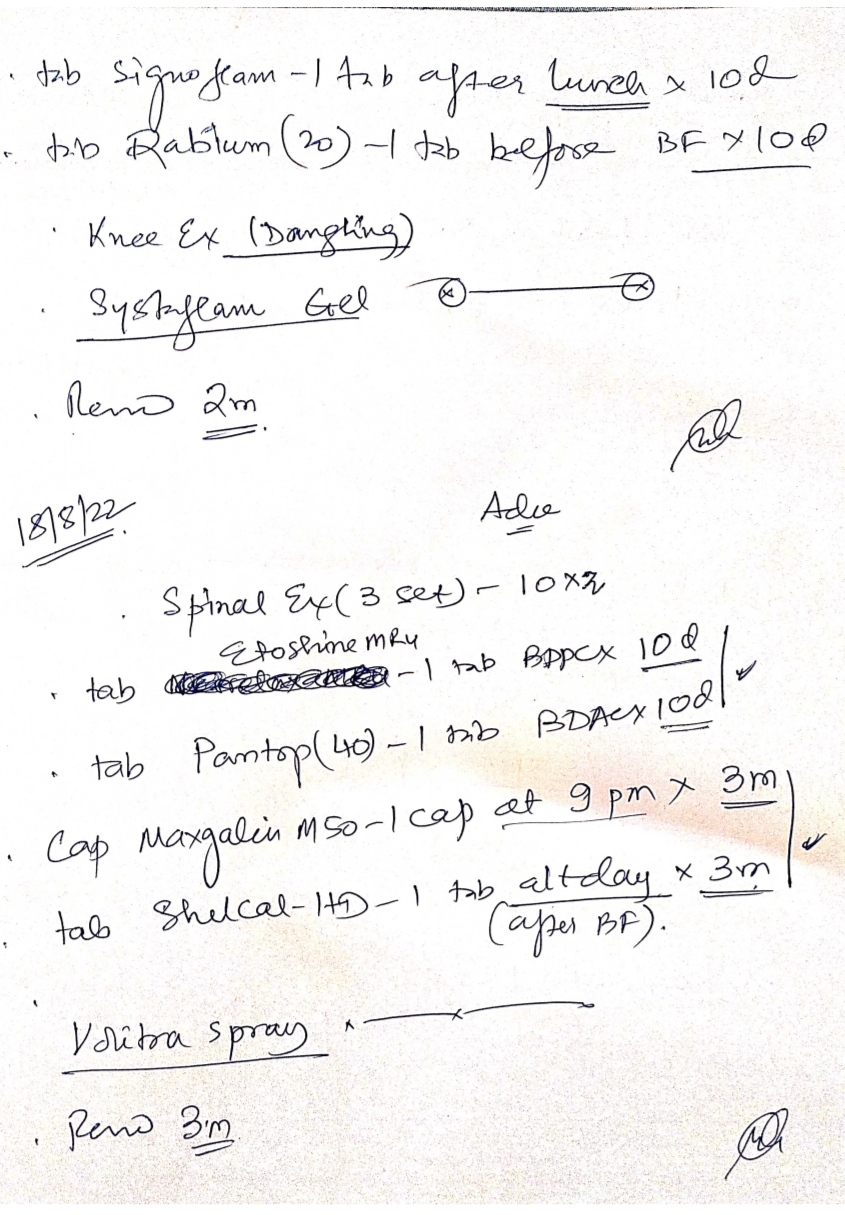 . tab Signoflam - 1 tab after lunch x 10d
. tab Rablum (20) - 1 tab before BF x 10d
. Knee Ex (Dangling)
. Systaflam Gel
. Revw 2m.
18/8/22. Advice
. Spinal Ex (3 set) - 10x
Etoshine MR4
. tab - 1 tab BDPC x 10d
. tab Pantop (40) - 1 tab BDAC x 10d
. Cap Maxgalin M 50 - 1 cap at 9 pm x 3m
. tab Shelcal-HD - 1 tab alt day x 3m
(after BF).
. Volitra spray
. Revw 3m